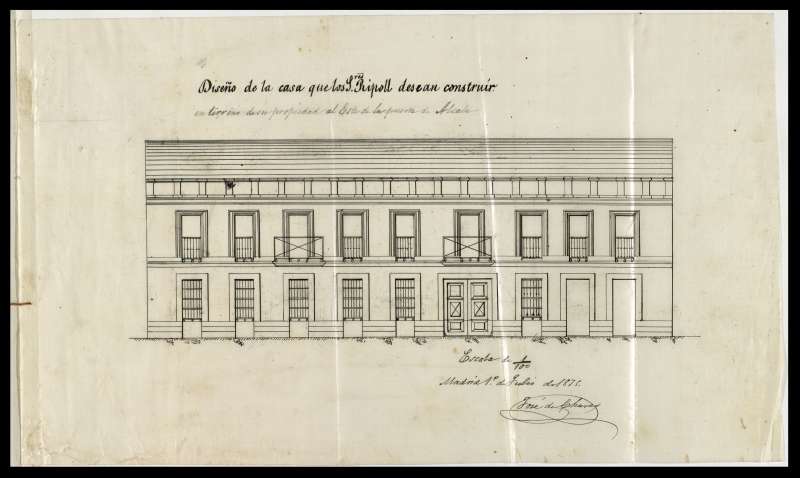 Diseño de la casa que los S.res Ripoll desean construir
en terreno de su propiedad al Este de la puerta de Alcalá
Escala de 1/100
Madrid 1º de Julio de 1875.
José de